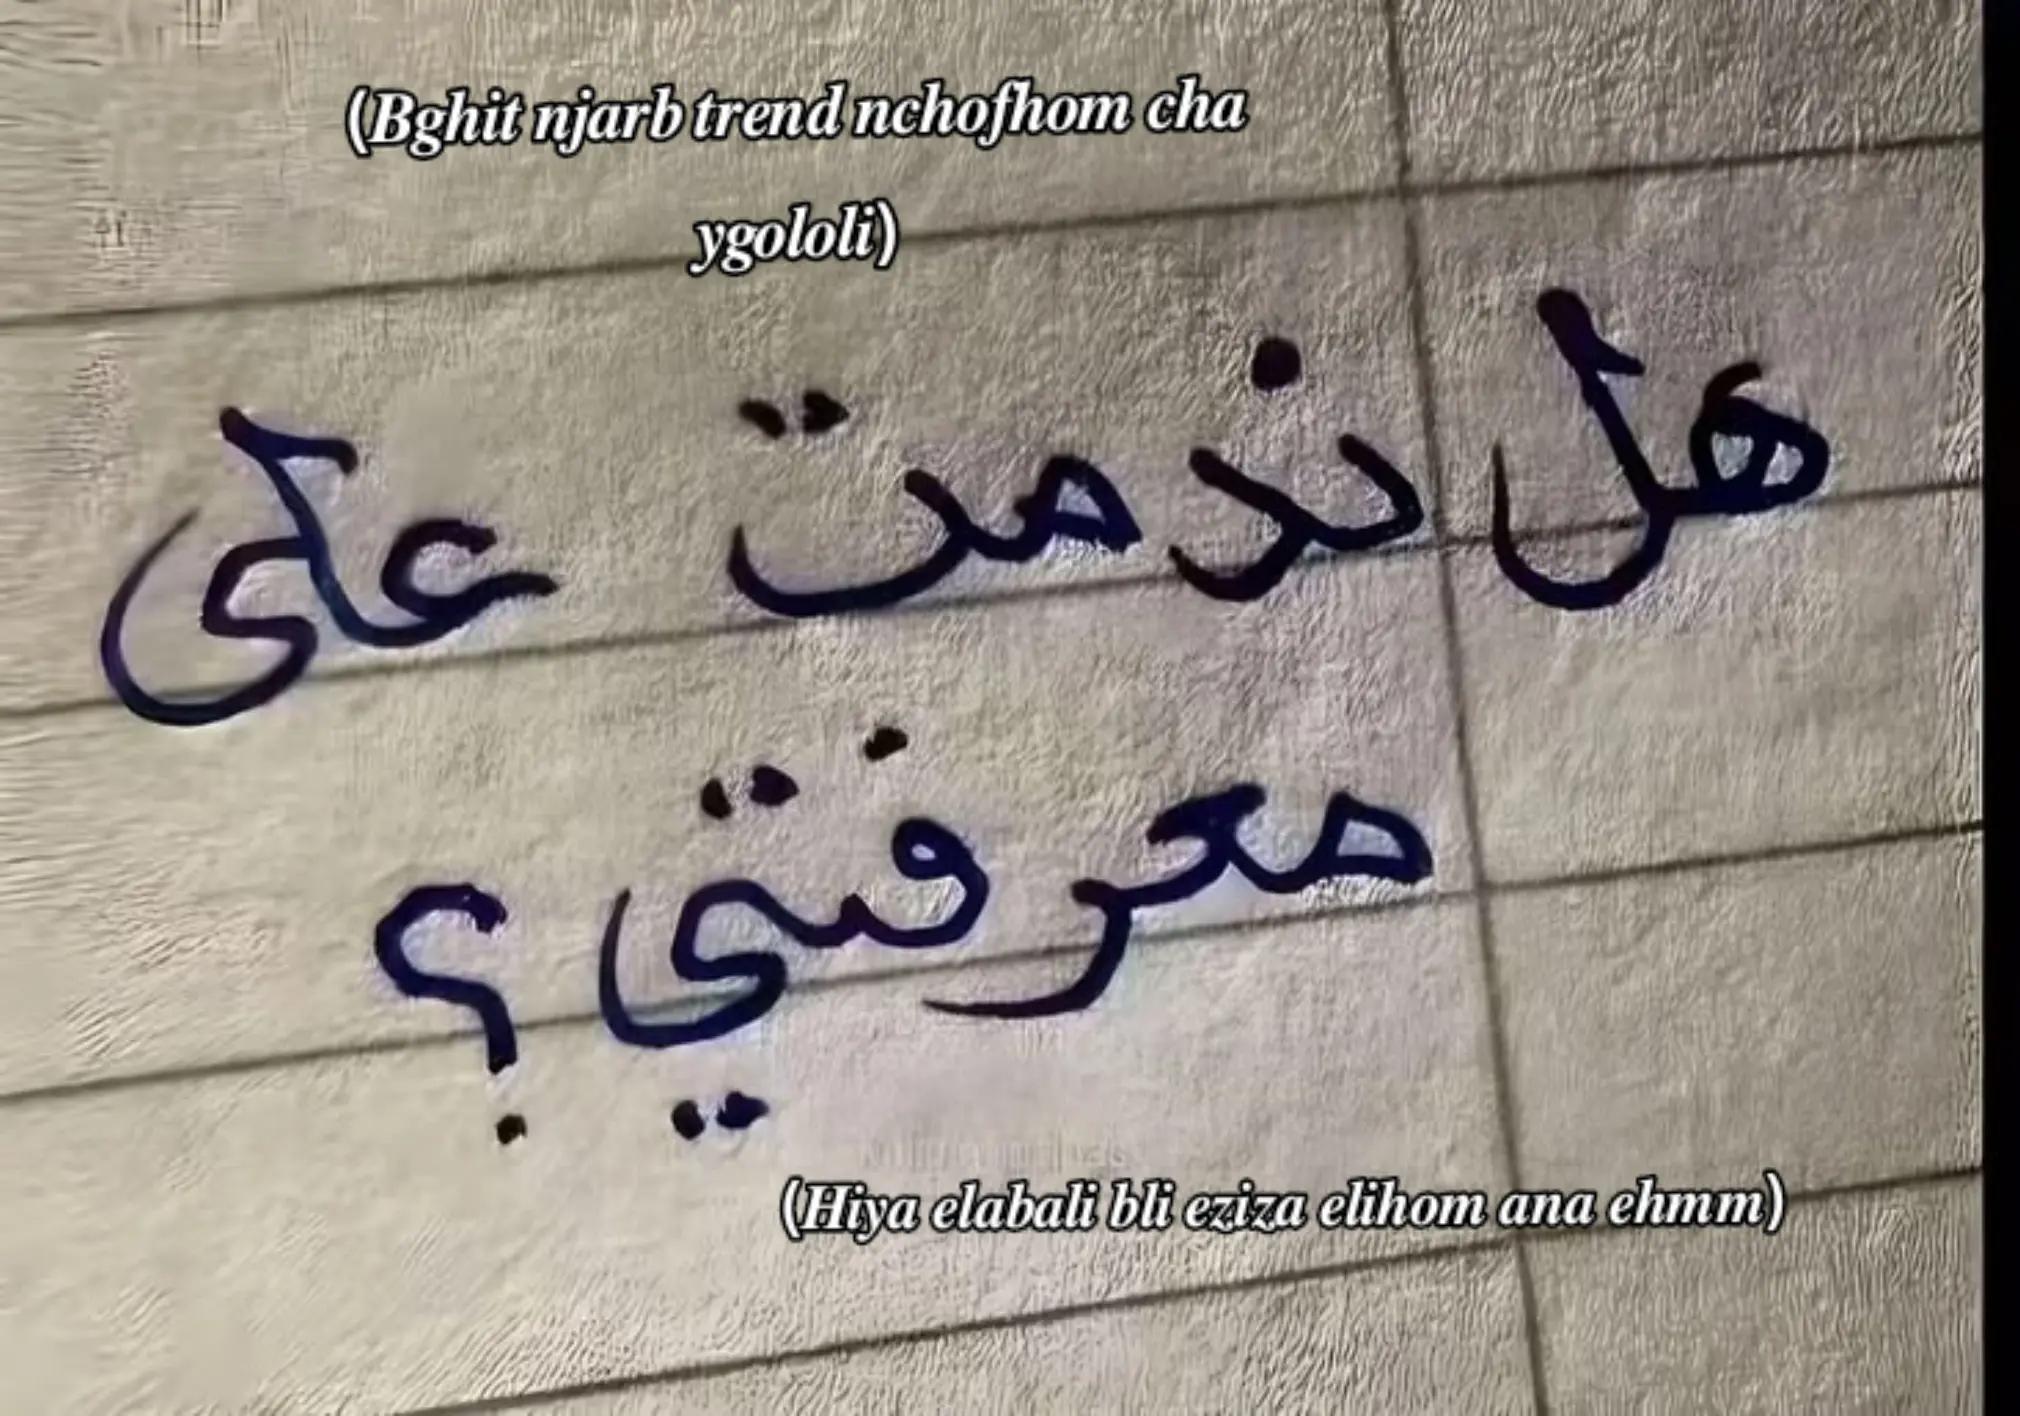 (Bghit njarb trend nchofhom cha
ygololi)
هل ندمت على
معرفتي؟
(Hiya elabali bli eziza elihom ana ehmm)